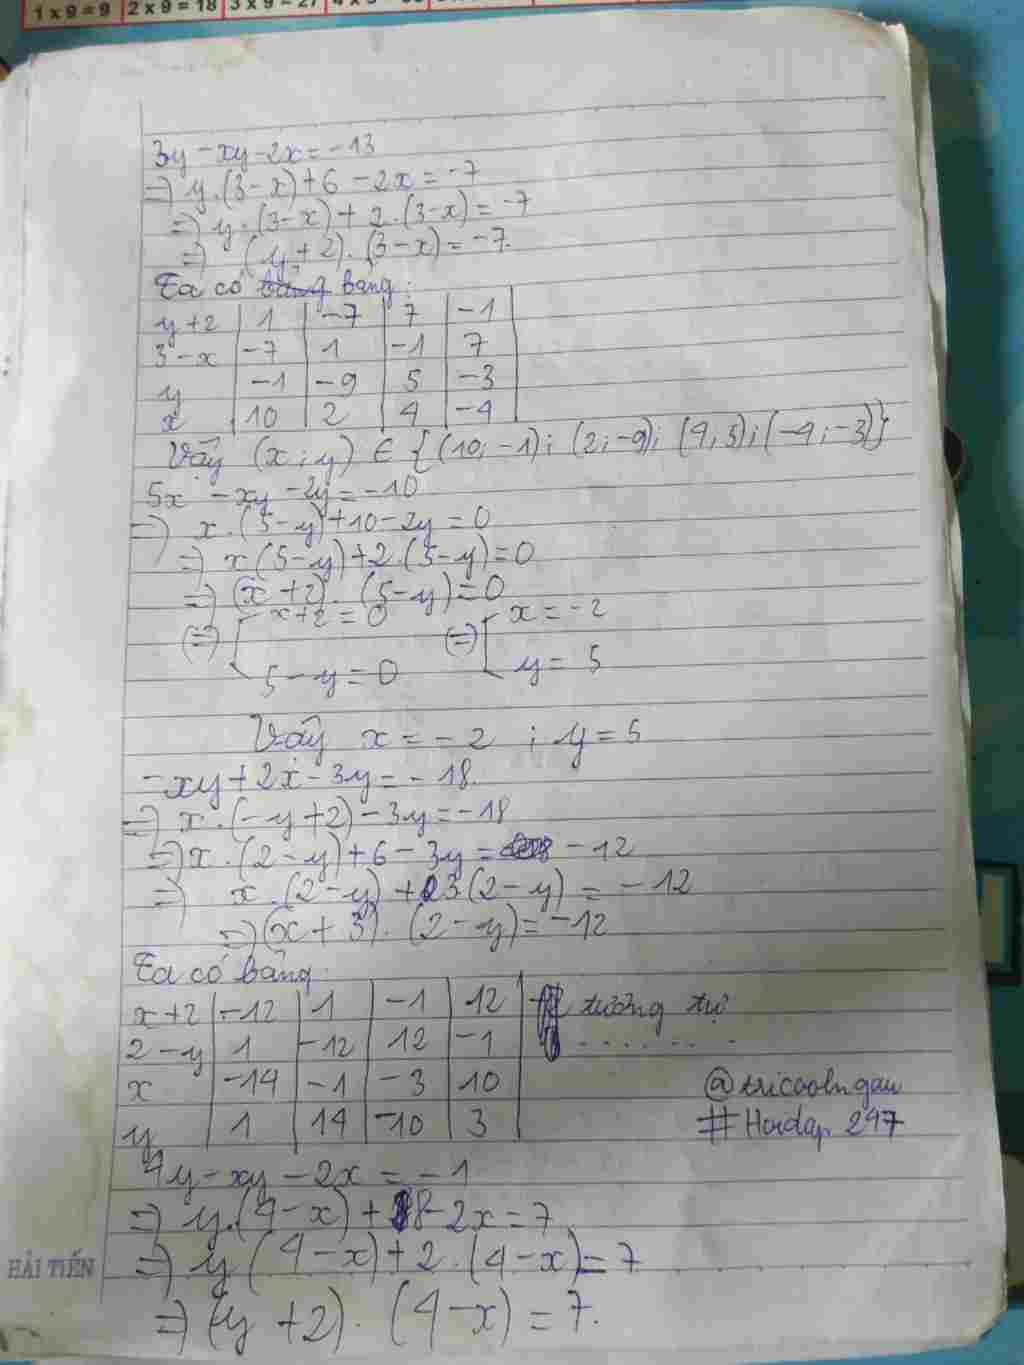 1 x 9 = 9 2 x 9 = 18 3 x 9 = 27
3y - xy - 2x = -13
=> y.(3-x)+6 - 2x = -7
=> y.(3-x) + 2.(3-x) = -7
=> (y+2).(3-x) = -7.
Ta có bảng:
y+2 | 1 | -7 | 7 | -1
3-x | -7 | 1 | -1 | 7
y | -1 | -9 | 5 | -3
x | 10 | 2 | 4 | -4
Vậy (x;y) ∈ {(10;-1); (2;-9); (4;5); (-4;-3)}
5x - xy - 2y = -10
=> x.(5-y)+10-2y = 0
=> x(5-y)+2.(5-y) = 0
=> (x+2).(5-y) = 0
(=) [ x+2 = 0 (=) [ x = -2
5-y = 0 y = 5
Vậy x = -2 ; y = 5
-xy + 2x - 3y = -18.
=> x.(-y+2) - 3y = -18
=> x.(2-y)+6-3y = -12
=> x.(2-y) + 3(2-y) = -12
=> (x+3).(2-y) = -12
Ta có bảng
x+2 | -12 | 1 | -1 | 12 | tương tự
2-y | 1 | -12 | 12 | -1 | . . . . . . . .
x | -14 | -1 | -3 | 10
y | 1 | 14 | -10 | 3
@tricoolngau
#Hoidap 247
4y - xy - 2x = -1
=> y.(4-x) + 8 - 2x = 7
=> y(4-x) + 2.(4-x) = 7
=> (y+2).(4-x) = 7.
HẢI TIẾN